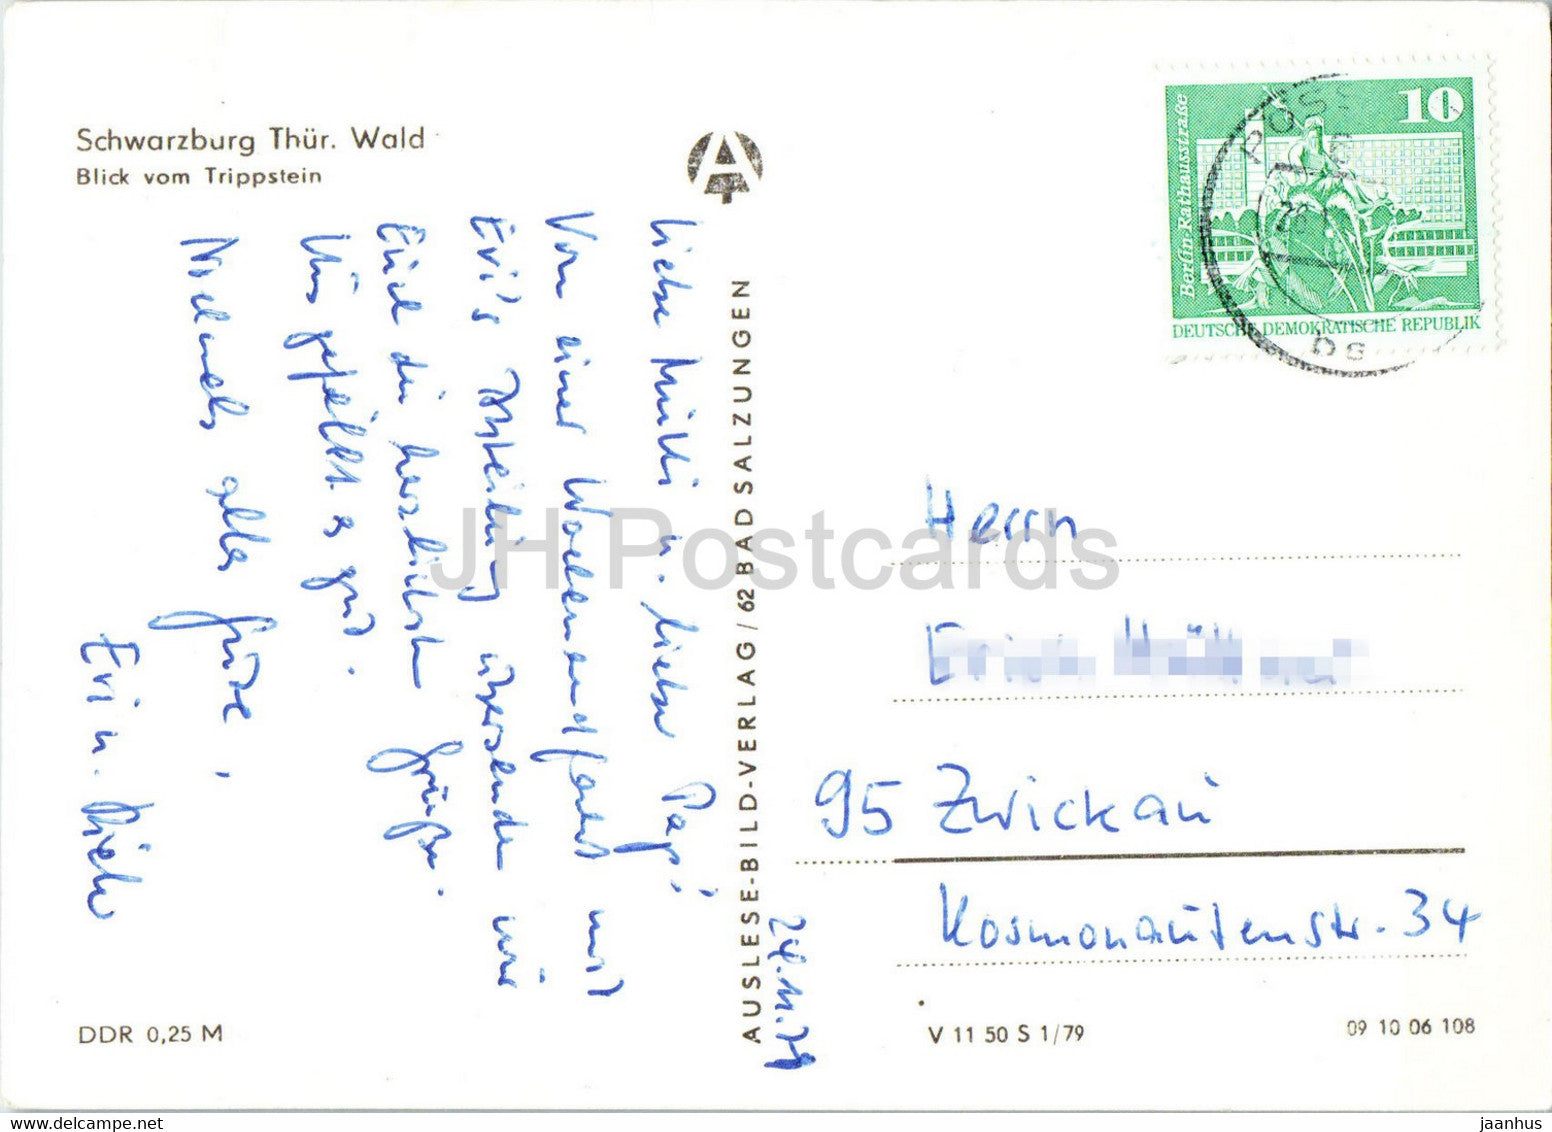 Schwarzburg Thür. Wald
Blick vom Trippstein
Liebe Mutti u. lieber Papi!
Von einer Wochenendfahrt mit
Evi's Abteilung übersenden wir
Euch die herzlichsten Grüße.
Uns gefällt es gut.
Nochmals alles Gute,
Evi u.
24.11.79
AUSLESE-BILD-VERLAG / 62 BAD SALZUNGEN
10
Berlin Rathausstraße
DEUTSCHE DEMOKRATISCHE REPUBLIK
Herrn
Erich
95 Zwickau
Kosmonautenstr. 34
DDR 0,25 M
V 11 50 S 1/79
09 10 06 108
JH Postcards
jaanhus